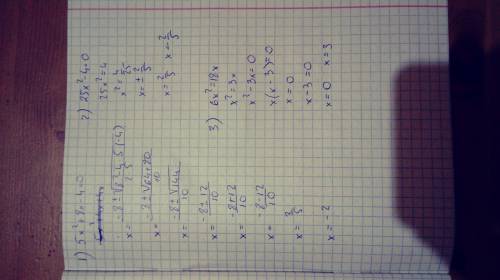 1) 5x²+8x-4=0
x = -8±√8²-4·5·(-4) / 2·5
x = -8±√64+80 / 10
x = -8±√144 / 10
x = -8±12 / 10
x = -8+12 / 10
x = -8-12 / 10
x = 2/5
x = -2
2) 25x²-4=0
25x²=4
x² = 4/25
x = ± 2/5
x = 2/5 x = -2/5
3) 6x²=18x
x²=3x
x²-3x=0
x(x-3)=0
x=0
x-3=0
x=0 x=3